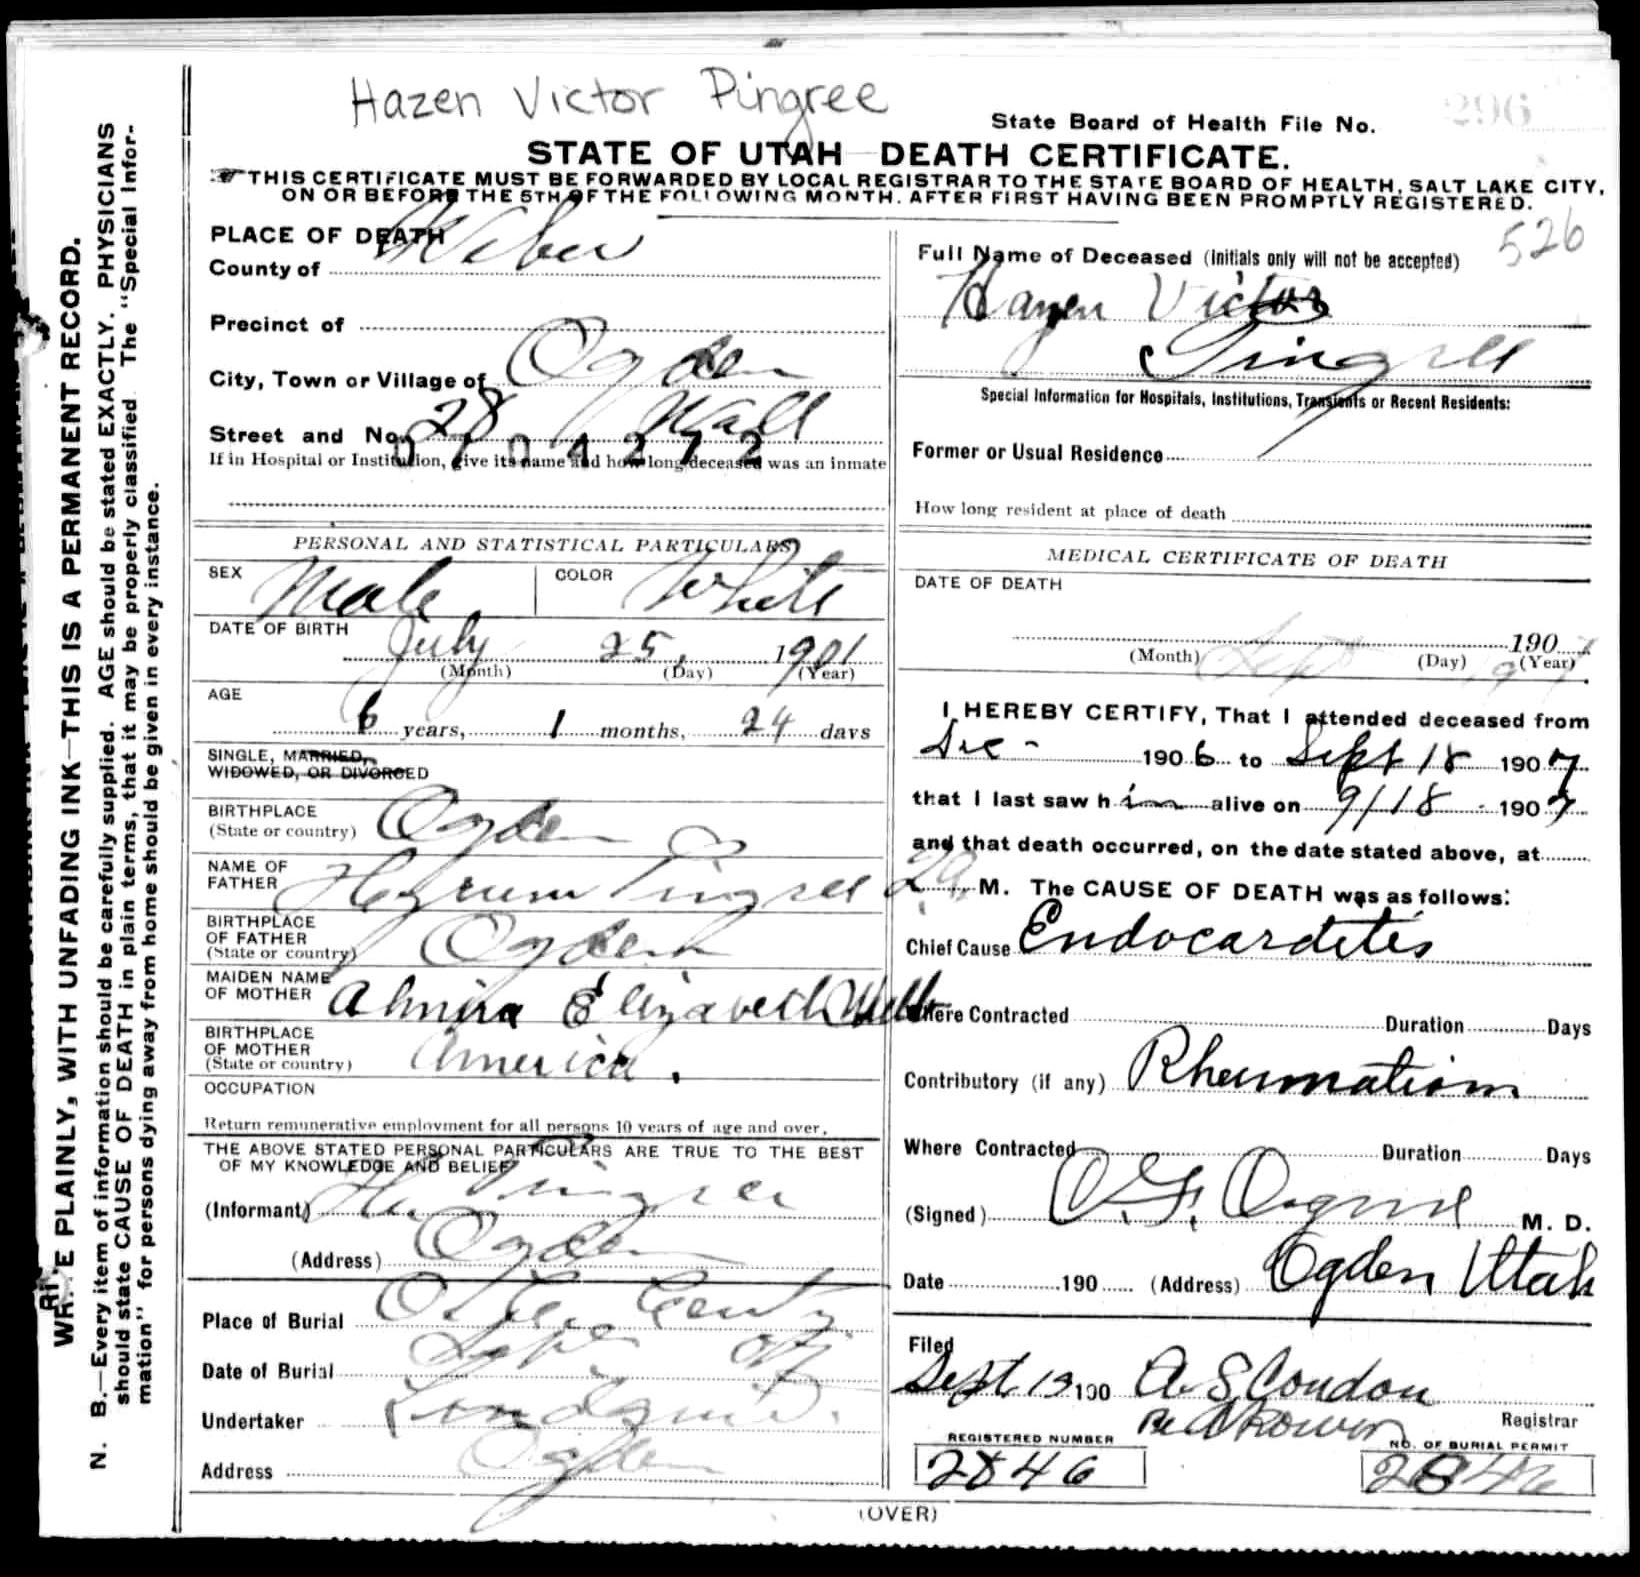 Hazen Victor Pingree
State Board of Health File No. 296
STATE OF UTAH DEATH CERTIFICATE.
THIS CERTIFICATE MUST BE FORWARDED BY LOCAL REGISTRAR TO THE STATE BOARD OF HEALTH, SALT LAKE CITY,
ON OR BEFORE THE 5TH OF THE FOLLOWING MONTH. AFTER FIRST HAVING BEEN PROMPTLY REGISTERED.
WRITE PLAINLY, WITH UNFADING INK—THIS IS A PERMANENT RECORD.
N. B.—Every item of information should be carefully supplied. AGE should be stated EXACTLY. PHYSICIANS
should state CAUSE OF DEATH in plain terms, that it may be properly classified. The "Special Infor-
mation" for persons dying away from home should be given in every instance.
PLACE OF DEATH
County of Weber
Precinct of
City, Town or Village of Ogden
Street and No. 28 Wall
0704272
If in Hospital or Institution, give its name and how long deceased was an inmate
PERSONAL AND STATISTICAL PARTICULARS
SEX Male COLOR White
DATE OF BIRTH July 25, 1901
(Month) (Day) (Year)
AGE
6 years, 1 months, 24 days
SINGLE, MARRIED,
WIDOWED, OR DIVORCED
BIRTHPLACE
(State or country) Ogden
NAME OF
FATHER Hyrum Pingree
BIRTHPLACE
OF FATHER
(State or country) Ogden
MAIDEN NAME
OF MOTHER Almira Elizabeth Webb
BIRTHPLACE
OF MOTHER
(State or country) America.
OCCUPATION
Return remunerative employment for all persons 10 years of age and over.
THE ABOVE STATED PERSONAL PARTICULARS ARE TRUE TO THE BEST
OF MY KNOWLEDGE AND BELIEF
(Informant) Pingree
(Address) Ogden
Place of Burial
Date of Burial Sept
Undertaker Lindquist
Address Ogden
526
Full Name of Deceased (Initials only will not be accepted)
Hazen Victor
Pingree
Special Information for Hospitals, Institutions, Transients or Recent Residents:
Former or Usual Residence
How long resident at place of death
MEDICAL CERTIFICATE OF DEATH
DATE OF DEATH
1907
(Month) Sept (Day) 19 (Year)
I HEREBY CERTIFY, That I attended deceased from
Dec - 1906 to Sept 18 1907
that I last saw him alive on 9/18 1907
and that death occurred, on the date stated above, at
2 a. M. The CAUSE OF DEATH was as follows:
Chief Cause Endocarditis
Where Contracted Duration Days
Contributory (if any) Rheumatism
Where Contracted Duration Days
(Signed) M. D.
Date 190 (Address) Ogden Utah
Filed
Sept. 19 190 A. S. Condon
Registrar
REGISTERED NUMBER NO. OF BURIAL PERMIT
2846 2846
(OVER)